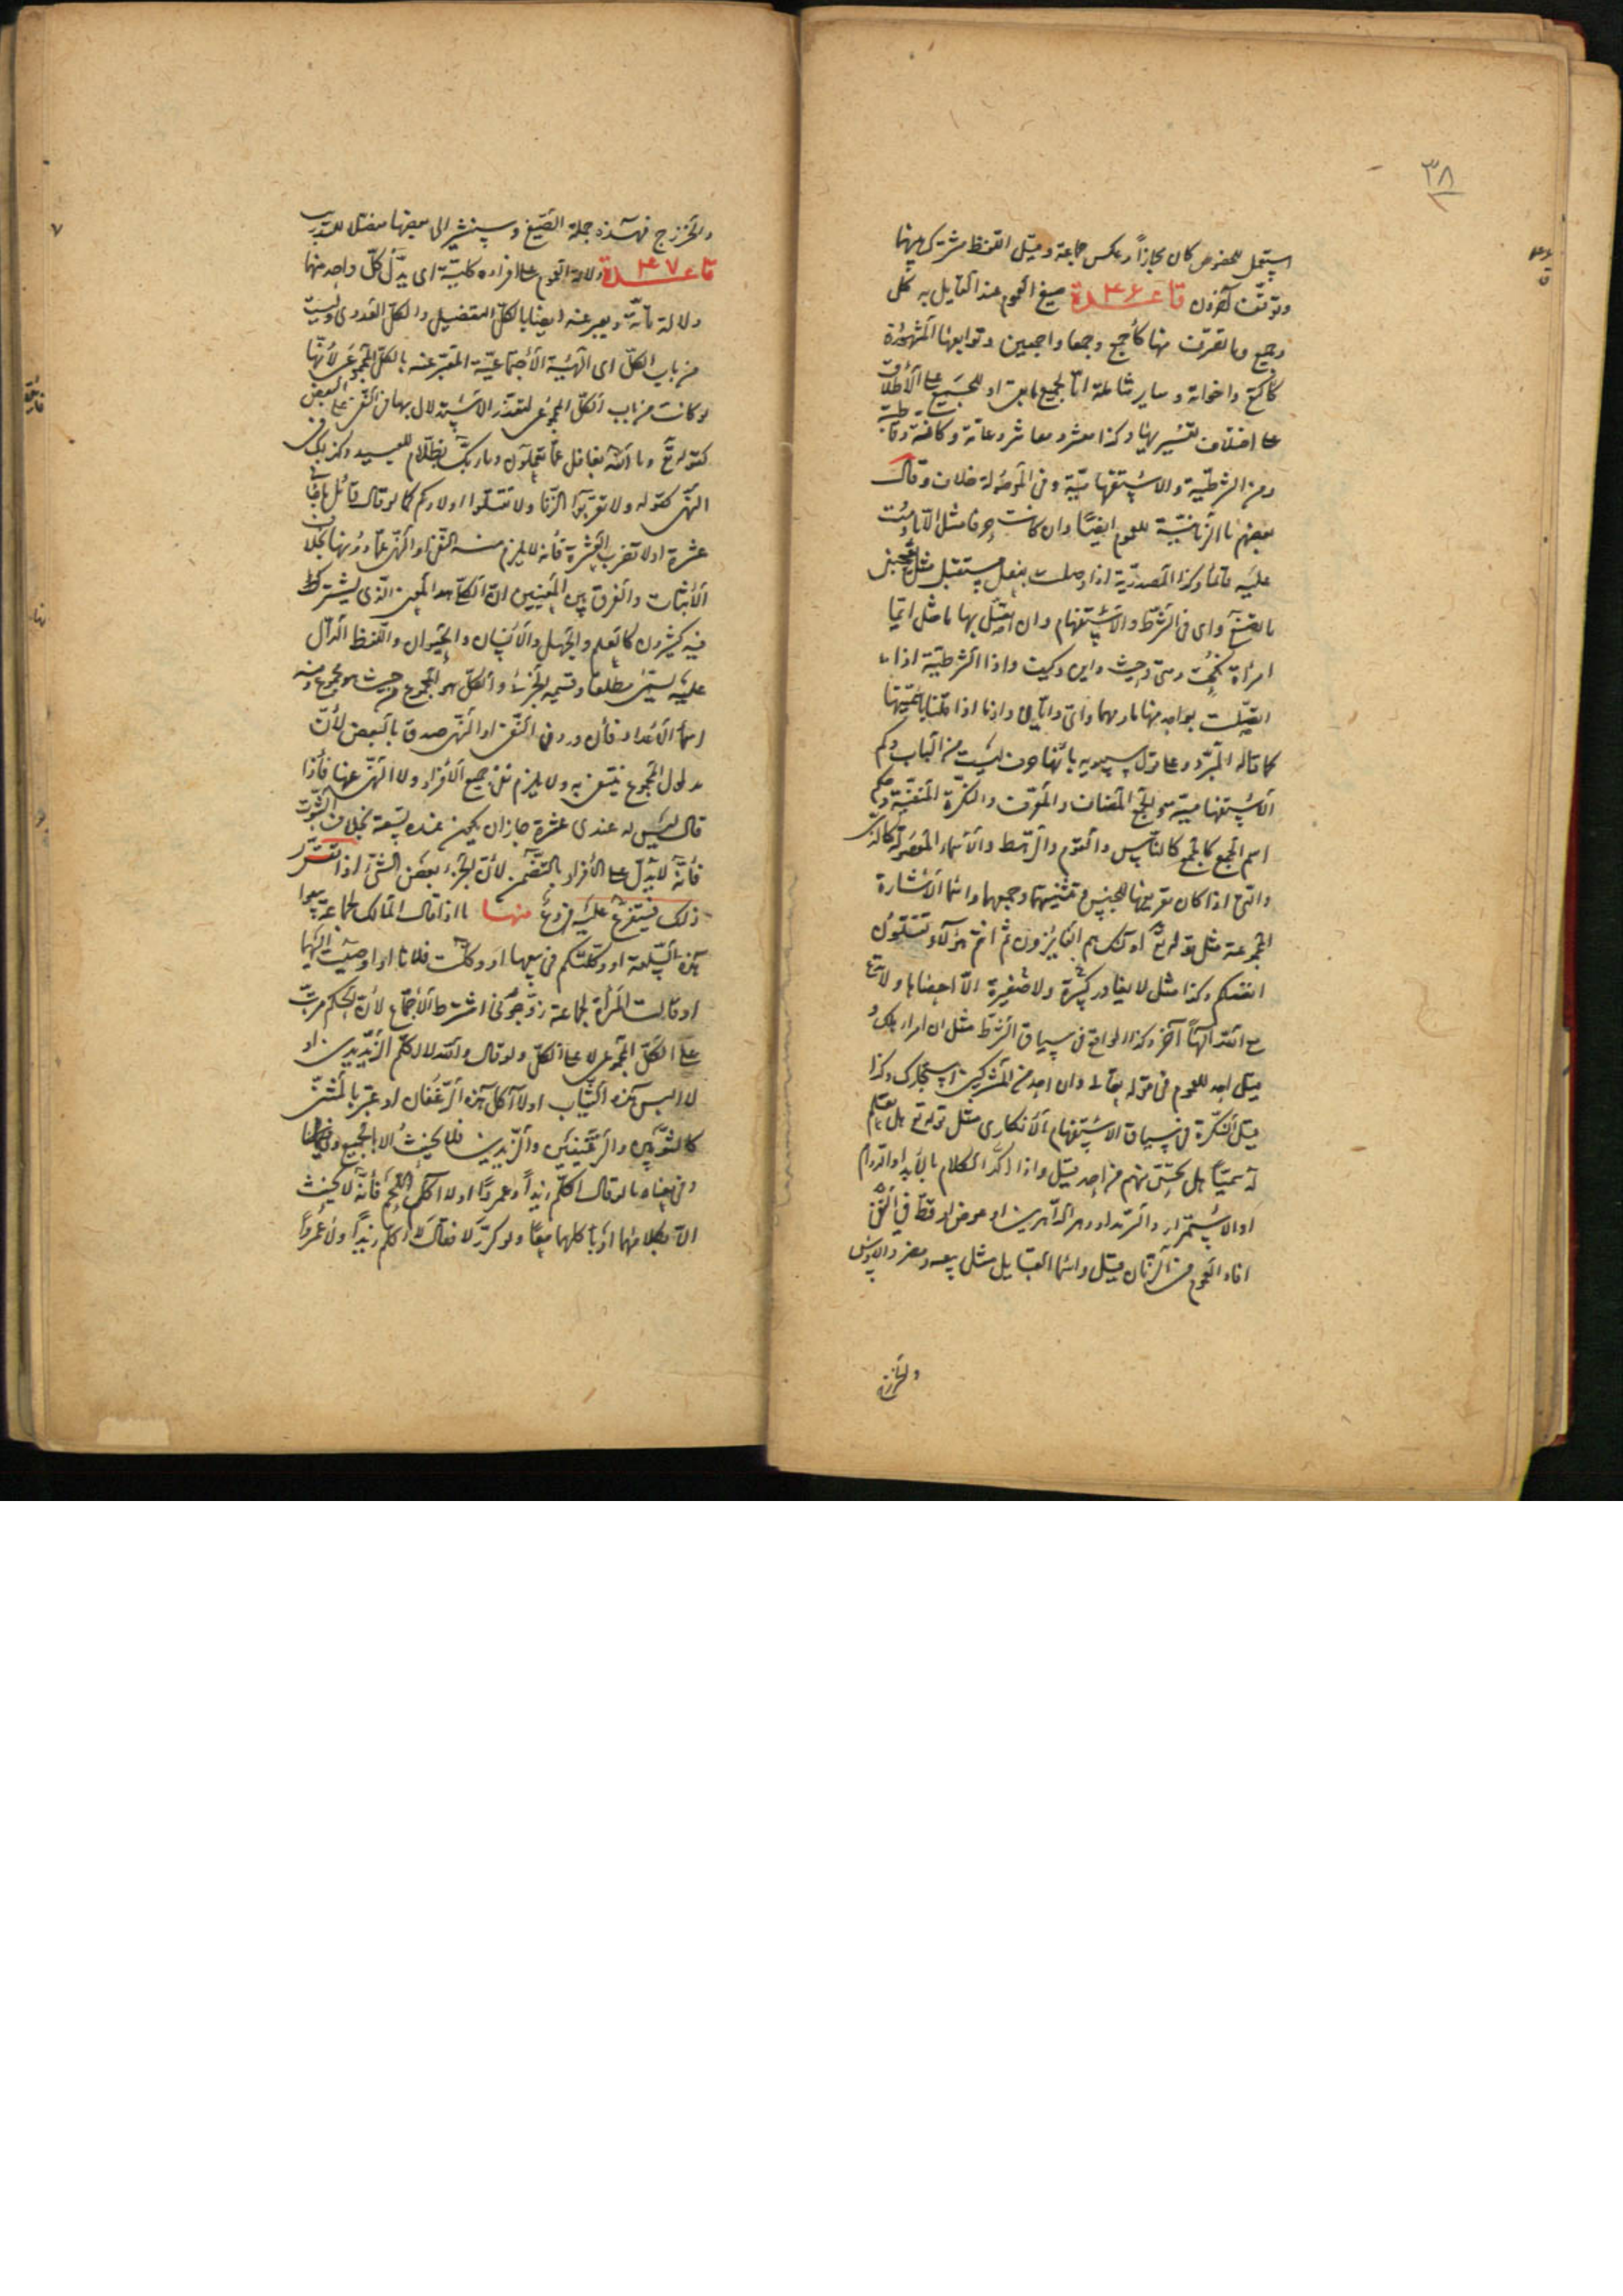 ٣٨
استعمل للخصوص كان مجازا وعكس جماعة وقيل اللفظ مشترك بينهما
وتوقف آخرون قاعدة ٤٦ صيغ العموم عند القايل به كل
وجميع وما تصرف منها كأجمع وجمعا واجمعين وتوابعها المشهورة
كأكتع واخواته وساير شاملة اما لجميع ما بقى او للجميع على الأطلاق
على اختلاف تفسيرها وكذا معشر ومعاشر وعامة وكافة وقاطبة
ومن الشرطية والاستفهامية وفى الموصولة خلاف وقال
بعضهم ما الزمانية للعموم ايضا وان كانت حرفا مثل الا ما دمت
عليه قائما وكذا المصدرية اذا وصلت بفعل مستقبل مثل يعجبنى
ما تصنع واى فى الشرط والاستفهام وان اتصل بها ما مثل ايما
امرأة نكحت ومتى وحيث واين وكيف واذا الشرطية اذا
اتصلت بواحد منها ما ومهما وانى وايان واذ ما اذا قلنا باسميتها
كما قاله المبرد وعلى قول سيبويه بانها حرف ليست من الباب وكم
الأستفهامية والجمع المضاف والمعرف والنكرة المنفية وحكم
اسم الجمع كالجمع كالناس والقوم والرهط والأسماء الموصولة كالذى
والتى اذا كان تعريفها للجنس وتثنيتهما وجمعهما واسما الأشارة
المجموعة مثل قوله تع اولئك هم الفايزون ثم انتم هؤلاء تقتلون
انفسكم وكذا مثل لا يغادر كبيرة ولا صغيرة الا احصاها ولا تدع
مع الله الها آخر وكذا الواقع فى سياق الشرط مثل ان امرؤ هلك و
قيل احد للعموم فى قوله تعالى وان احد من المشركين استجارك وكذا
قيل النكرة فى سياق الاستفهام الأنكارى مثل قوله تع هل تعلم
له سميا هل تحس منهم من احد قيل واذا اكد الكلام بالأبد او الدوام
او الاستمرار والسرمد او دهر الداهرين او عوض او قط فى النفى
افاد العموم فى الزمان قيل واسما القبايل مثل ربيعة ومضر والاوس
والخزرج
والخزرج فهذه جملة الصيغ وسنشير الى بعضها مفصلا للتدريب
قاعدة ٤٧ دلالة العموم على افراده كلية اى يدل كل واحد منها
دلالة تامة ويعبر عنه ايضا بالكل التفصيلى والكل العددى وليست
من باب الكل اى الهيئة الأجتماعية المعبر عنه بالكل المجموعى لأنها
لو كانت من باب الكل المجموعى لتعذر الاستدلال بها فى النفى على البعض
كقوله تع وما الله بغافل عما تعملون وما ربك بظلام للعبيد وكذلك فى
النهى كقوله ولا تقربوا الزنا ولا تقتلوا اولادكم كما لو قال قائل ما ضاع
عشرة اولا تضرب العشرة فأنه لا يلزم منه النفى او النهى عما دونها بخلاف
الأثبات والفرق بين المعنيين ان الكلى هو المعنى الذى يشترك
فيه كثيرون كالعلم والجهل والأنسان والحيوان واللفظ الدال
عليه يسمى مطلقا وقسيمه الجزئى والكل هو المجموع من حيث هو مجموع ومنه
اسما الأعداد فأن ورد فى النفى او النهى صدق بالبعض لأن
مدلول المجموع ينتفى به ولا يلزم نفى جميع الأفراد ولا النهى عنها فأذا
قال ليس له عندى عشرة جاز ان يكون عنده تسعة بخلاف الثبوت
فأنه يدل على الأفراد بالتضمن لأن الجزء بعض الشئ اذا تقرر
ذلك فيتفرع عليه فروع منها ما اذا قال المالك لجماعة بيعوا
هذه السلعة او وكلتكم فى بيعها او وكلت فلانا او اوصيت اليهما
او قالت المرأة لجماعة زوجونى اشترط الأجتماع لأن الحكم مرتب
على الكل المجموعى لا على الكلى ولو قال والله لا اكلم الزيدين او
لا البس هذه الثياب اولا آكل هذه الرغفان او عبر بالمثنى
كالثوبين والرغيفين والزيدين فلا يحنث الا بالجميع
وفى معناه ما لو قال لا اكلم زيدا وعمروا اولا آكل اللحم فأنه لا يحنث
الا بكلامهما او باكلهما معا ولو كرر لا فقال لا اكلم زيدا ولا عمروا